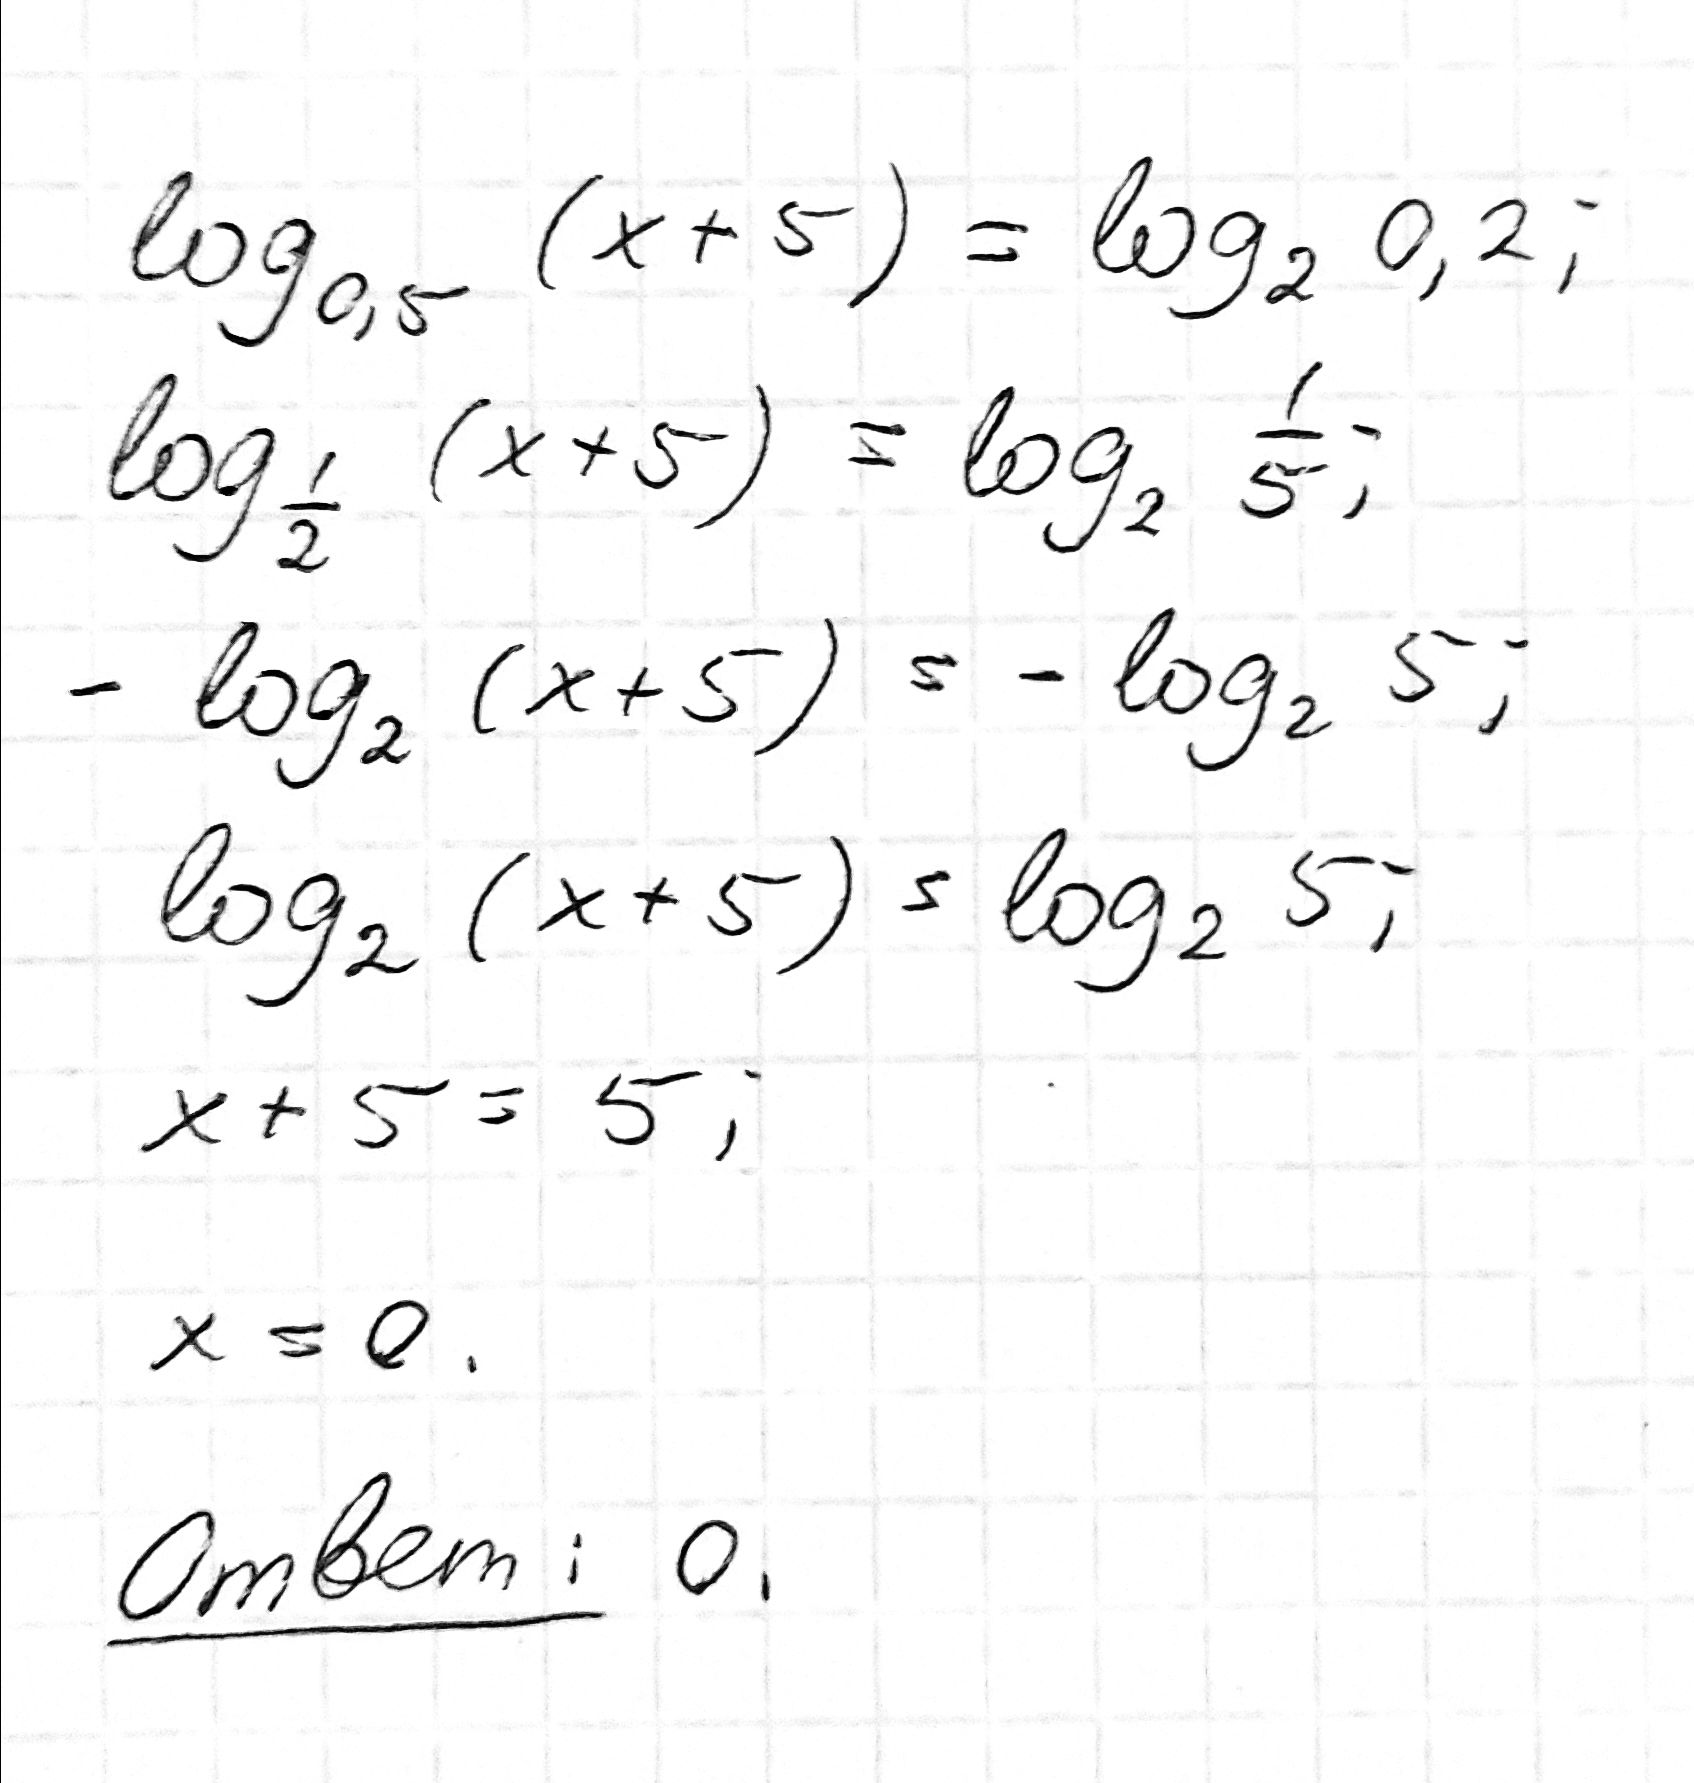 log₀,₅ (x + 5) = log₂ 0,2;
log_{1/2} (x + 5) = log₂ 1/5;
- log₂ (x + 5) = - log₂ 5;
log₂ (x + 5) = log₂ 5;
x + 5 = 5;
x = 0.
Ответ: 0.